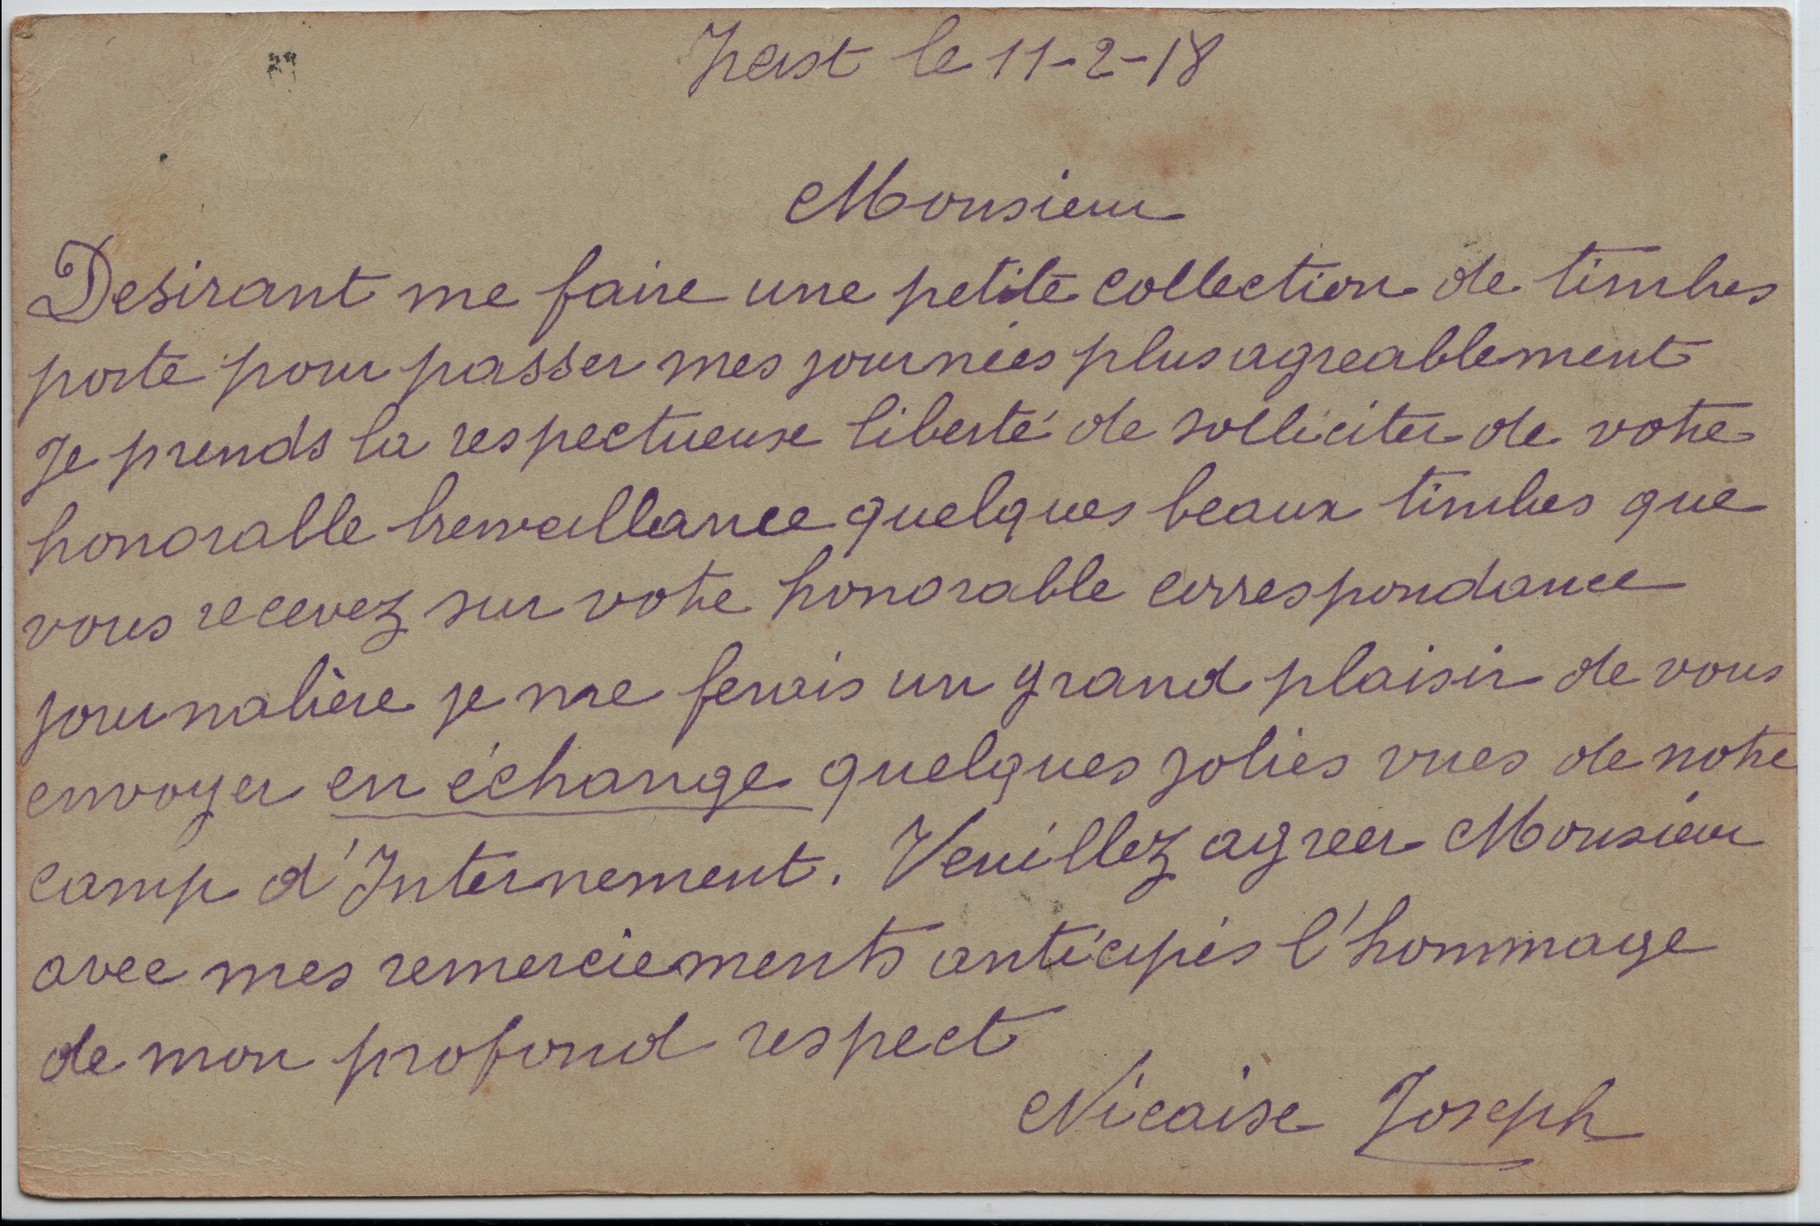 Zeist le 11-2-18
Monsieur
Desirant me faire une petite collection de timbres
poste pour passer mes journées plus agreablement
Je prends la respectueuse liberté de solliciter de votre
honorable bienveillance quelques beaux timbres que
vous recevez sur votre honorable correspondance
journalière je me ferais un grand plaisir de vous
envoyer en échange quelques jolies vues de notre
camp d'Internement. Veuillez agreer Monsieur
avec mes remerciements anticipés l'hommage
de mon profond respect
Nicaise Joseph